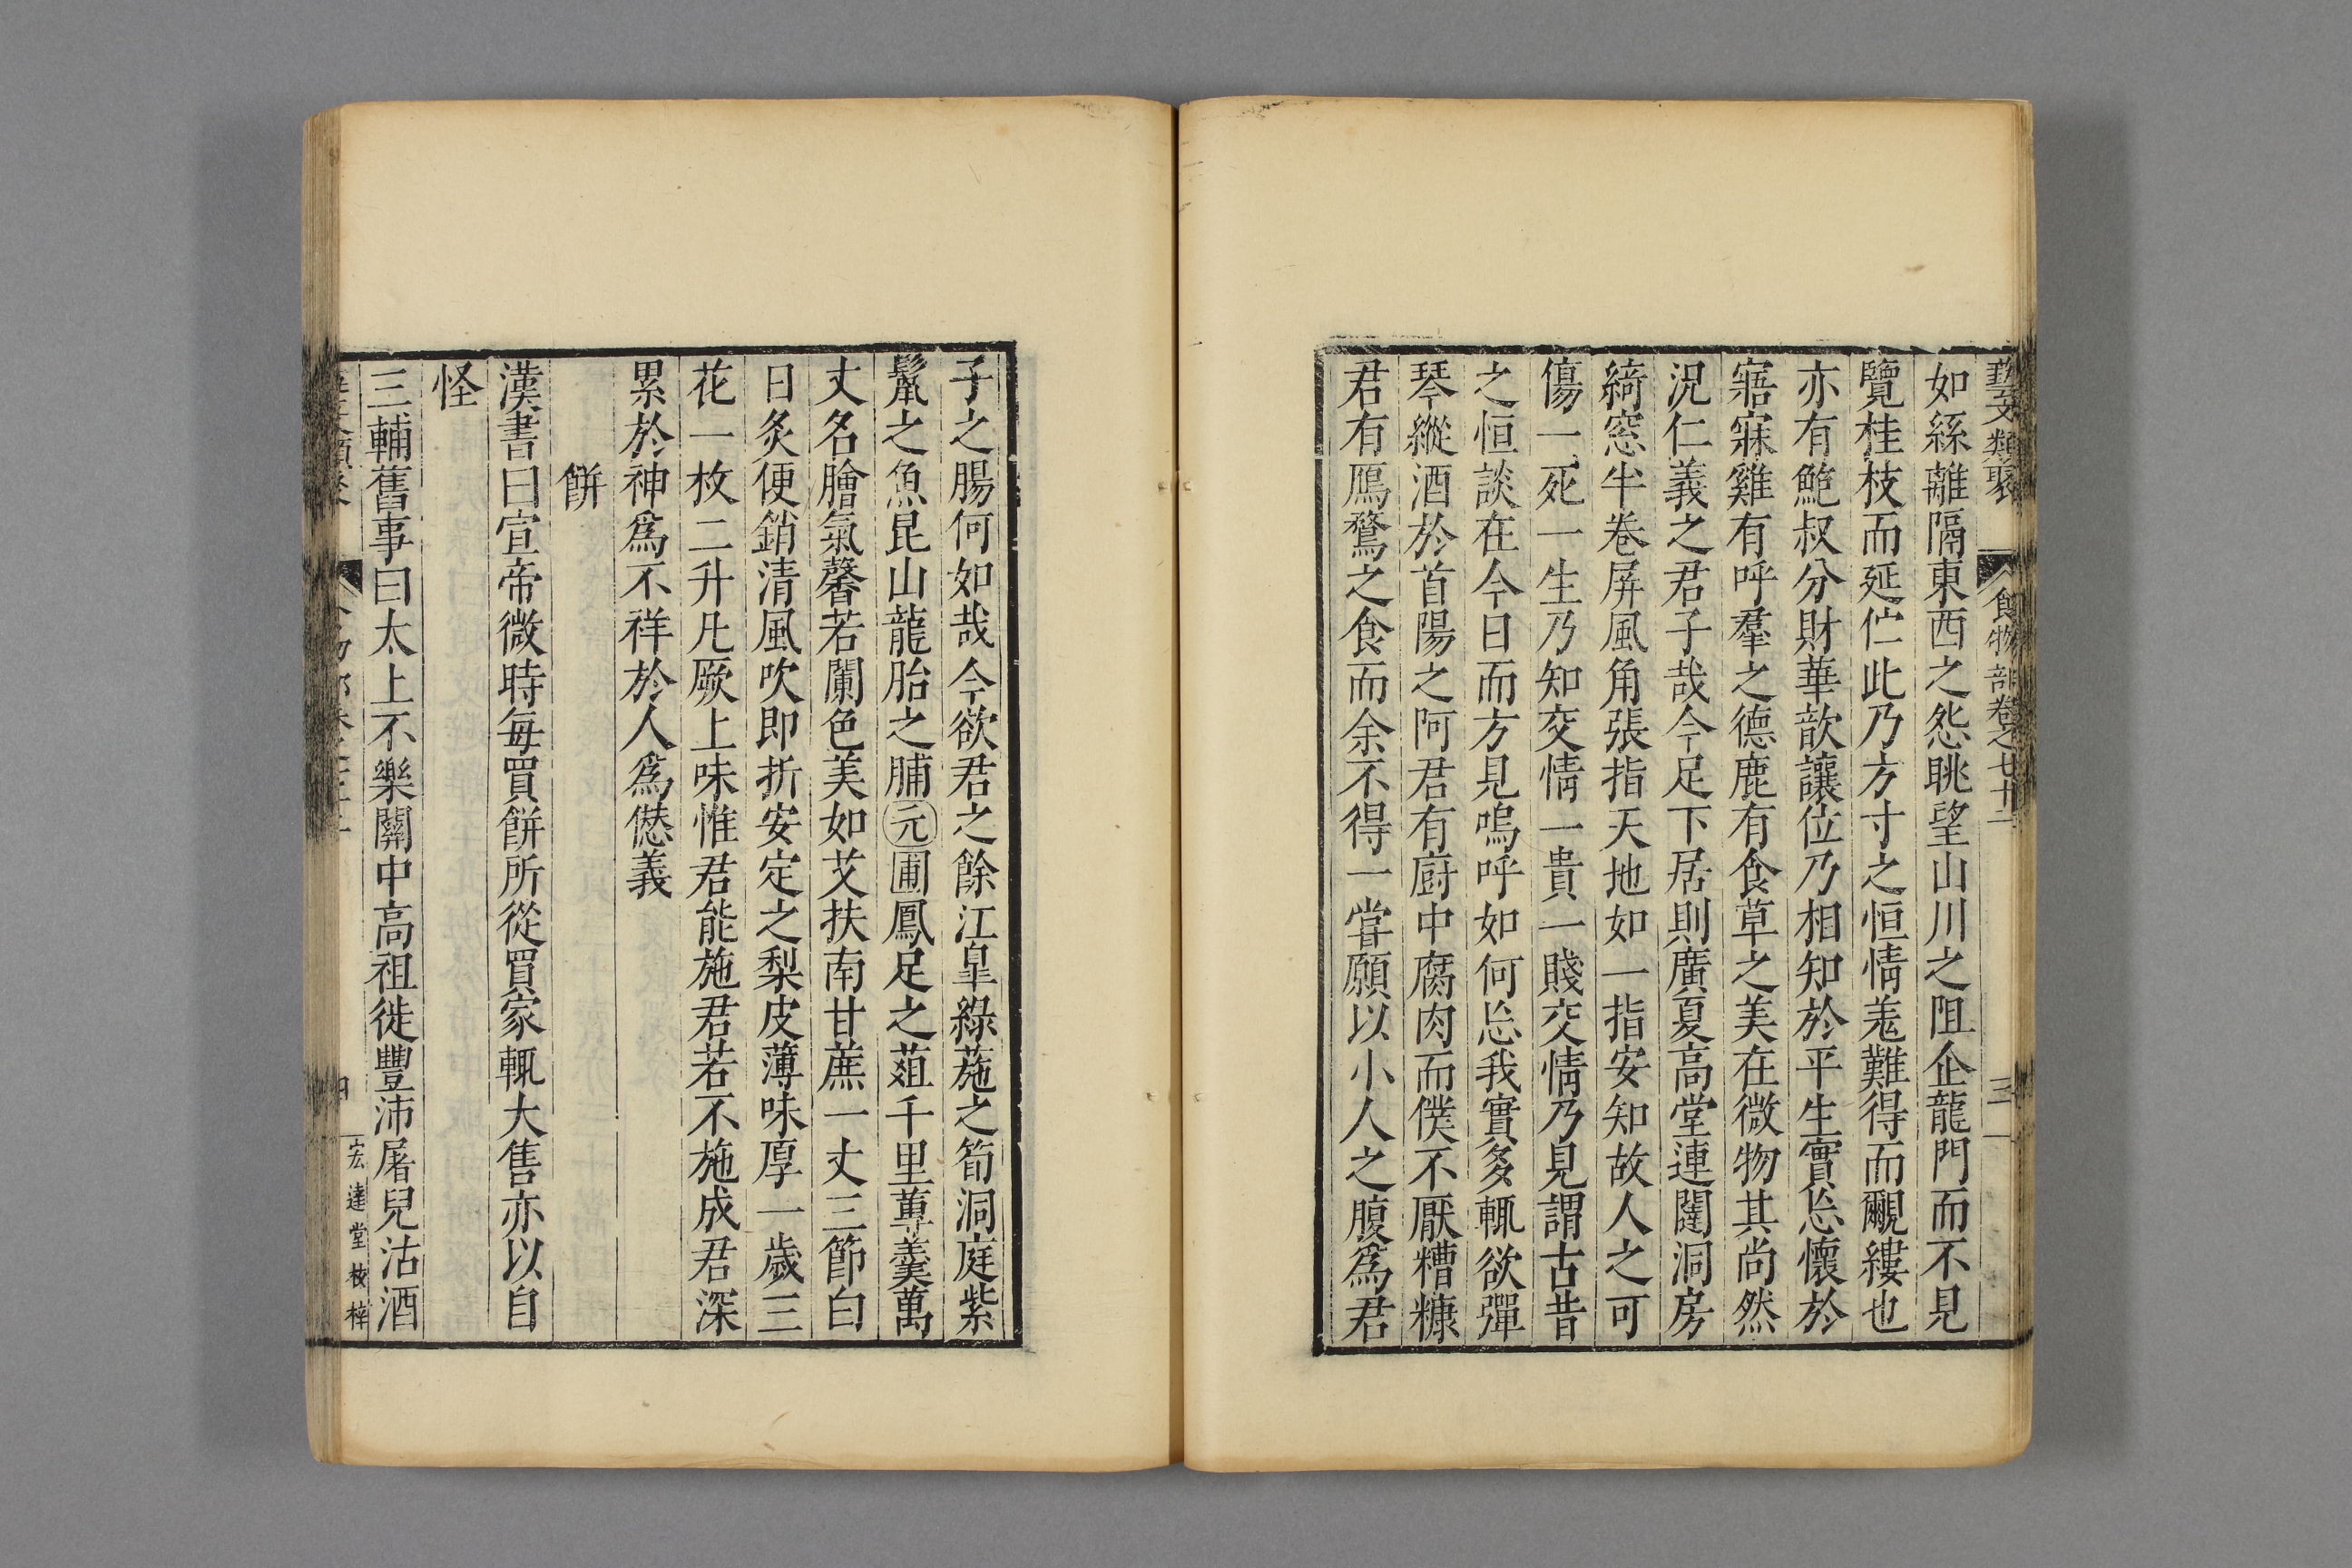 藝文類聚 食物部卷之七十二 三
如絲離隔東西之怨眺望山川之阻企龍門而不見
覽桂枝而延伫此乃方寸之恒情羗難得而覼縷也
亦有鮑叔分財華歆讓位乃相知於平生實忘懷於
寤寐雞有呼羣之德鹿有食草之美在微物其尚然
況仁義之君子哉今足下居則廣夏高堂連闥洞房
綺窓半卷屏風角張指天地如一指安知故人之可
傷一死一生乃知交情一貴一賤交情乃見謂古昔
之恒談在今日而方見嗚呼如何忘我實多輒欲彈
琴縱酒於首陽之阿君有廚中腐肉而僕不厭糟糠
君有鴈鶩之食而余不得一嘗願以小人之腹爲君
子之腸何如哉今欲君之餘江皐綠葹之筍洞庭紫
鬣之魚昆山龍胎之脯元圃鳳足之葅千里蓴羹萬
丈名膾氣馨若蘭色美如艾扶南甘蔗一丈三節白
日炙便銷清風吹即折安定之梨皮薄味厚一歲三
花一枚二升凡厥上味惟君能施君若不施成君深
累於神爲不祥於人爲愆義
餅
漢書曰宣帝微時每買餅所從買家輒大售亦以自
怪
三輔舊事曰太上不樂關中高祖徙豐沛屠兒沽酒
宏達堂校梓